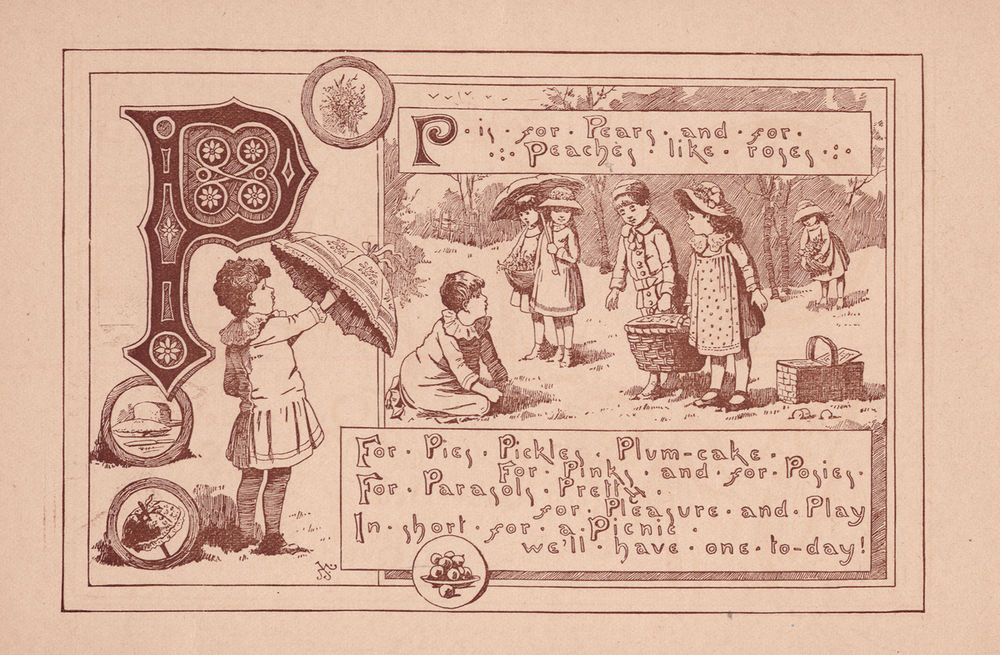 P
P · is · for · Pears · and · for ·
Peaches · like · roses ·
For · Pies · Pickles · Plum-cake ·
For · Pinks · and · for · Posies ·
For · Parasols · Pretty ·
for · Pleasure · and · Play
In · short · for · a · Picnic ·
we'll · have · one · to-day!